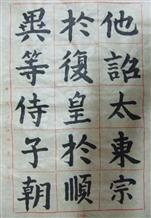 異於他
等復詔
侍皇太
子於東
朝順宗